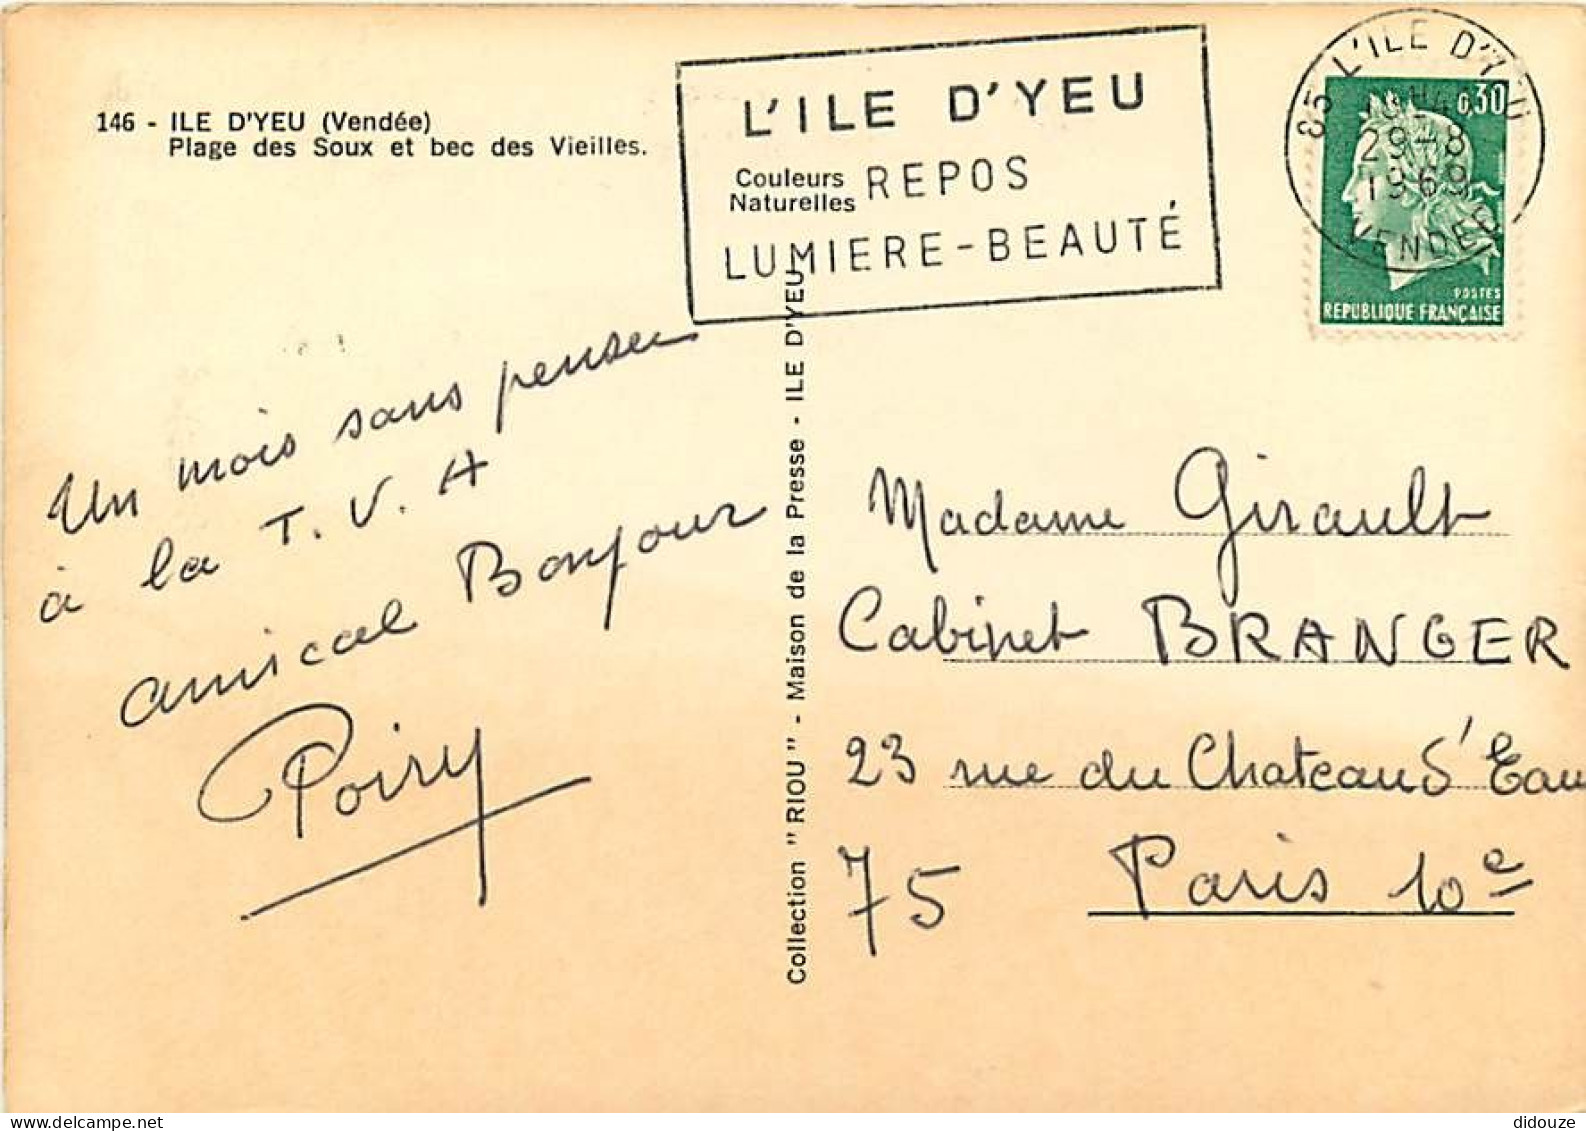 146 - ILE D'YEU (Vendée)
Plage des Soux et bec des Vieilles.
L'ILE D'YEU
Couleurs
Naturelles
REPOS
LUMIERE-BEAUTÉ
85 L'ILE D'YEU
29-8
1969
VENDEE
0,30
POSTES
REPUBLIQUE FRANÇAISE
Un mois sans penser
à la T.V.A
amical Bonjour
Poiry
Collection "RIOU" - Maison de la Presse - ILE D'YEU
Madame Girault
Cabinet BRANGER
23 rue du Chateau d'Eau
75 Paris 10e
didouze